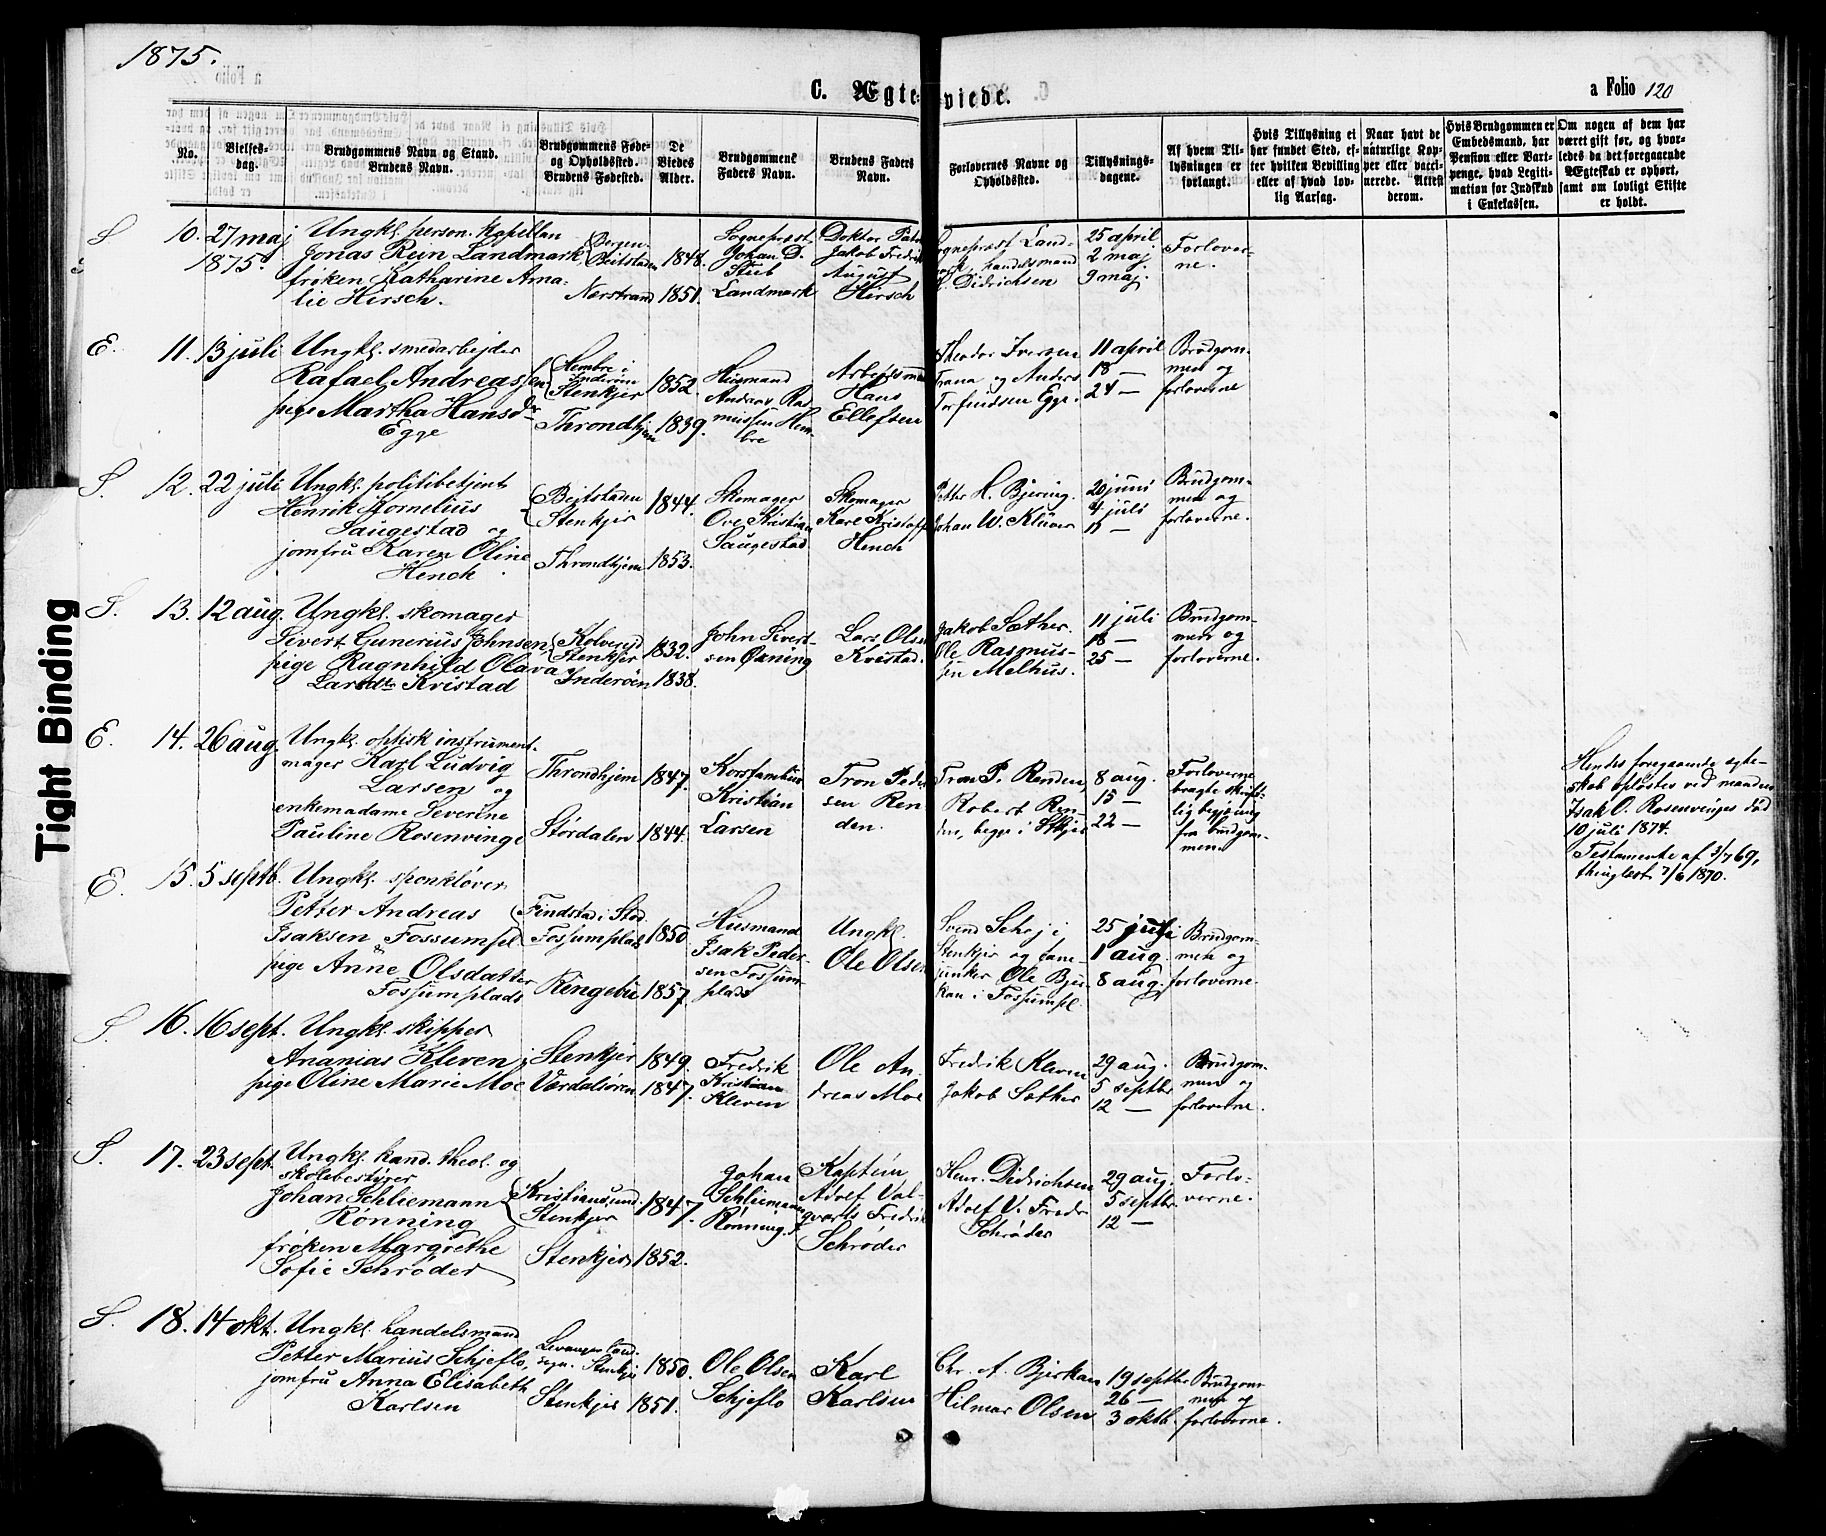 1875.
C. Ægteviede.
a Folio 120
No.
Vielses-
dag.
Brudgommens Navn og Stand.
Brudens Navn.
Brudgommens Føde-
og Opholdssted.
Brudens Fødested.
De
Viedes
Alder.
Brudgommens
Faders Navn.
Brudens Faders
Navn.
Forlovernes Navne og
Opholdssted.
Tillysnings-
dagene.
Af hvem Til-
lysningen er
forlangt.
Hvis Tillysning ei
har fundet Sted, ef-
ter hvilken Bevilling
eller af hvad lov-
lig Aarsag.
Naar havt de
naturlige Kop-
per eller vacci-
nerede. Attest
derom.
Hvis Brudgommen er
Embedsmand, har
Pension eller Vart-
penge, hvad Legiti-
mation for Indskud
i Enkekassen.
Om nogen af dem har
været gift før, og hvor-
ledes da det foregaaende
Ægteskab er ophørt,
samt om lovligt Skifte
er holdt.
S 10. 27 maj 1875.
Ungkl. person. kapellan
Jonas Rein Landmark
frøken Katharine Ama-
lie Hirsch.
Bergen.
Beitstaden 1848.
Nærstrand 1851.
Sogneprest
Johan D.
Stub
Landmark
Doktor
Jakob Fredrik
August
Hirsch
Sogneprest Land-
mark, handelsmand
H. Didrichsen
25 april
2 maj
9 maj.
Forlover-
ne.
E. 11. 13 juli
Ungkl. smedarbejder
Rafael Andreassen
pige Martha Hansdr
Egge
Hembre i
Inderøen
Stenkjer 1852.
Throndhjem 1839.
Husmand
Andreas Ras-
mussen Hem-
bre
Arbejdsmand
Hans
Ellefsen
Theodor Iversen
Trana og Anders
Torfindsen Egge.
11 april
18 —
24 —
Brudgom-
men og
forloverne
S. 12. 22 juli
Ungkl. politibetjent
Henrik Kornelius
Saugestad og
jomfru Karen Oline
Hench.
Beitstaden
Stenkjer 1844.
Throndhjem 1853.
Skomager
Ove Kristian
Saugestad
Skomager
Karl Kristoff.
Hench
Petter H. Bjering.
Johan W. Klüver
20 juni
4 juli
11 —
Brudgom-
men og
forloverne.
S. 13. 12 aug.
Ungkl. skomager
Sivert Gunerius Johnsen
pige Ragnhild Olava
Larsdtr Kvistad
Kolvereid
Stenkjer 1832.
Inderøen 1838.
John Sivert-
sen Øxning
Lars Olsen
Kvistad.
Jakob Sæther.
Ole Rasmus-
sen Melhus.
11 juli
18 —
25 —
Brudgom-
men og
forloverne.
E. 14. 26 aug.
Ungkl. optisk instrument-
mager Karl Ludvig
Larsen og
enkemadame Severine
Pauline Rosenvinge
Throndhjem 1847.
Størdalen 1844.
Kristian
Larsen
Tron Peder-
sen Ren-
den.
Tron P. Renden,
Robert Ren-
den, begge i Stkjer
8 aug.
15 —
22 —
Forloverne
bragte skrift-
lig begjæring
fra brudgom-
men.
Hendes foregaaende ægte-
skab opløstes ved manden
Isak O. Rosenvinges død
10 juli 1874.
Testamente af 3/7 69,
thinglæst 7/6 1870.
E. 15. 5 septb.
Ungkl. sponkløver
Petter Andreas
Isaksen Fossumpl.
&
pige Anne Olsdatter
Fossumplads
Findstad i Stod
Fossumplads 1850
Ringebu 1857.
Husmand
Isak Peder-
sen Fossum-
plads
Ungkl.
Ole Olsen
Svend Schej i
Stenkjer og
Ole Bjer-
kan i Fossumpl.
25 juli
1 aug.
8 aug.
Brudgom-
men og
forloverne.
S. 16. 16 sept.
Ungkl. skipper
Ananias Kleven
pige Oline Marie Moe
Stenkjer 1849.
Værdalsøren 1847.
Fredrik
Kristian
Kleven
Ole An-
dreas Moe
Fredrik Kleven
Jakob Sæther
29 aug.
5 septbr
12 —
Brudgom-
men og
forloverne.
S. 17. 23 sept.
Ungkl. kand. theol. og
skolebestyrer
Johan Schliemann
Rønning
frøken Margrethe
Sofie Schrøder
Kristiansund.
Stenkjer 1847.
Stenkjer 1852.
Johan
Schliemann
Rønning.
Kaptein
Adolf Val-
gvarth Fredrik
Schrøder
Henr. Didrichsen
Adolf V. Fredr.
Schrøder
29 aug.
5 septbr.
12 —
Forlo-
verne.
S. 18. 14 okt.
Ungkl. handelsmand
Petter Marius Schjeflo,
jomfru Anna Elisabeth
Karlsen
Levanger land-
sogn. Stenkjer 1850.
Stenkjer 1851.
Ole Olsen
Schjeflo
Karl
Karlsen
Chr. A. Bjerkan
Hilmar Olsen
19 septbr
26 —
3 oktb.
Brudgom-
men og
forloverne.
Tight Binding